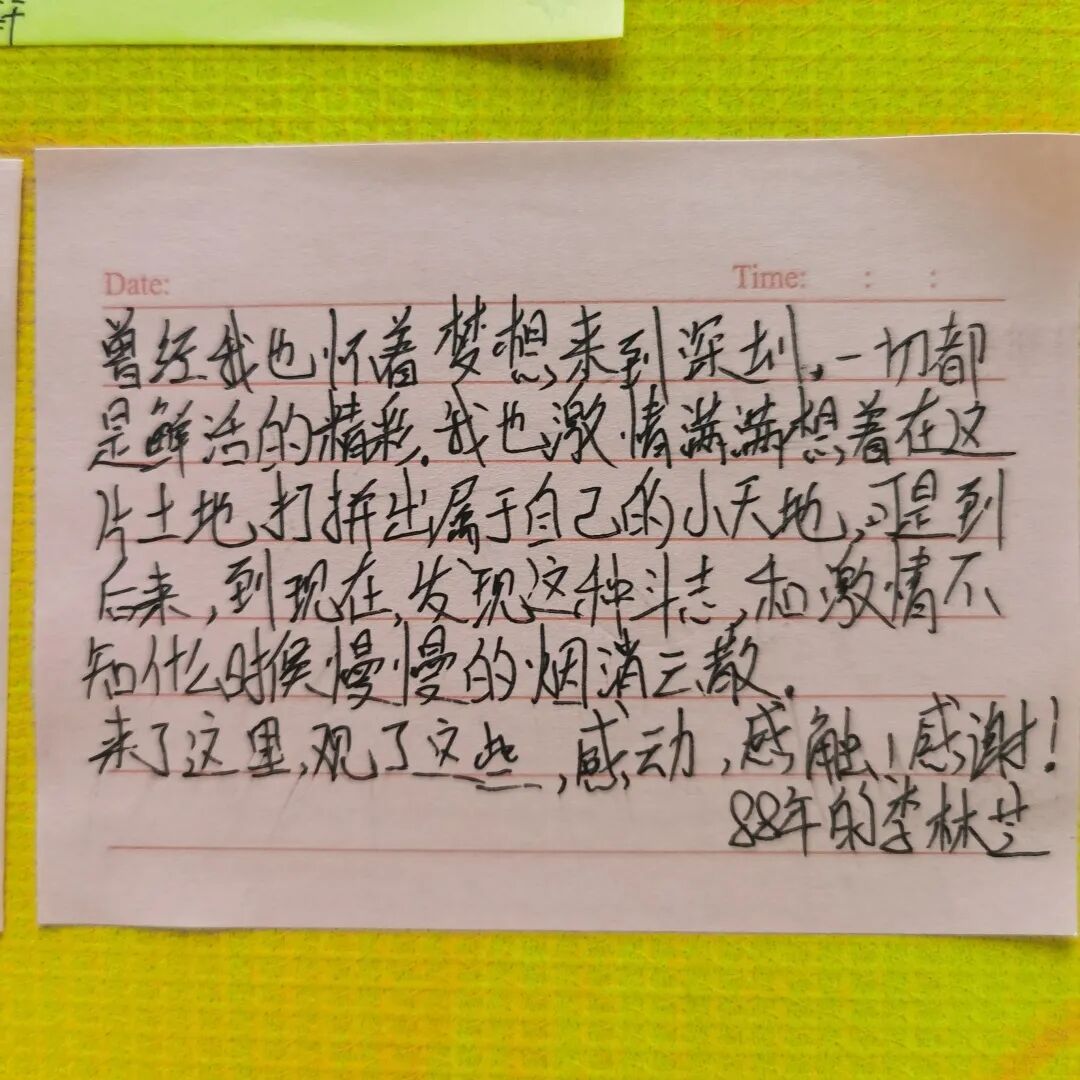 Date: Time: : :
曾经我也怀着梦想来到深圳,一切都
是鲜活的精彩.我也激情满满想着在这
片土地打拼出属于自己的小天地,可是到
后来,到现在,发现这种斗志,和激情不
知什么时候慢慢的烟消云散.
来了这里,观了这些,感动,感触,感谢!
88年的李林芝